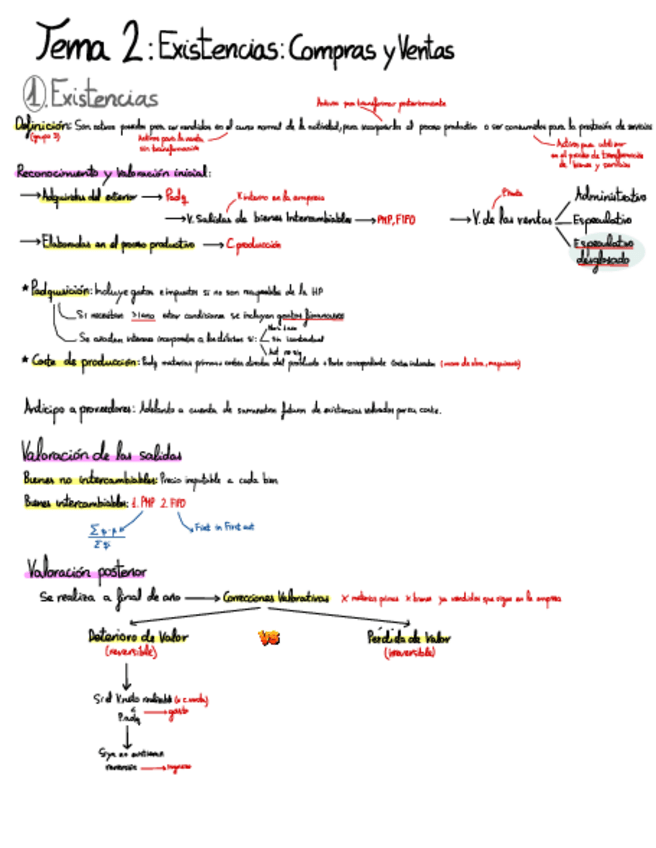 Tema 2: Existencias: Compras y Ventas
1. Existencias
Activos para transformar posteriormente
Definición: Son activos poseídos para ser vendidos en el curso normal de la actividad, para incorporarlos al proceso productivo o ser consumidos para la prestación de servicios
(grupo 3)
Activos para la venta
sin transformación
Activos para utilizar
en el proceso de transformación
de bienes y servicios
Reconocimiento y Valoración inicial:
→ Adquiridas del exterior → Padq
X interno en la empresa
→ V. Salidas de bienes Intercambiables → PMP, FIFO
→ V. de las ventas
Administrativo
Especulativo
Especulativo
desglosado
→ Elaboradas en el proceso productivo → C. producción
* Padquisición: Incluye gastos e impuestos si no son recuperables de la HP
Si necesitan >1 año estar condiciones se incluyen gastos financieros
Se añaden intereses incorporados a los débitos si:
* Coste de producción: Padq materias primas + costes directos del producto + Parte correspondiente costes indirectos (mano de obra, maquinaria)
Anticipo a proveedores: Adelanto a cuenta de suministros futuros de existencias valorados por su coste.
Valoración de las salidas
Bienes no intercambiables: Precio imputable a cada bien
Bienes intercambiables: 1. PMP 2. FIFO
First in First out
Valoración posterior
Se realiza a final de año → Correcciones Valorativas X materias primas X bienes ya vendidos que sigue en la empresa
Deterioro de Valor VS Pérdida de Valor
(reversible) (irreversible)
Padq → gasto
reversión → ingreso